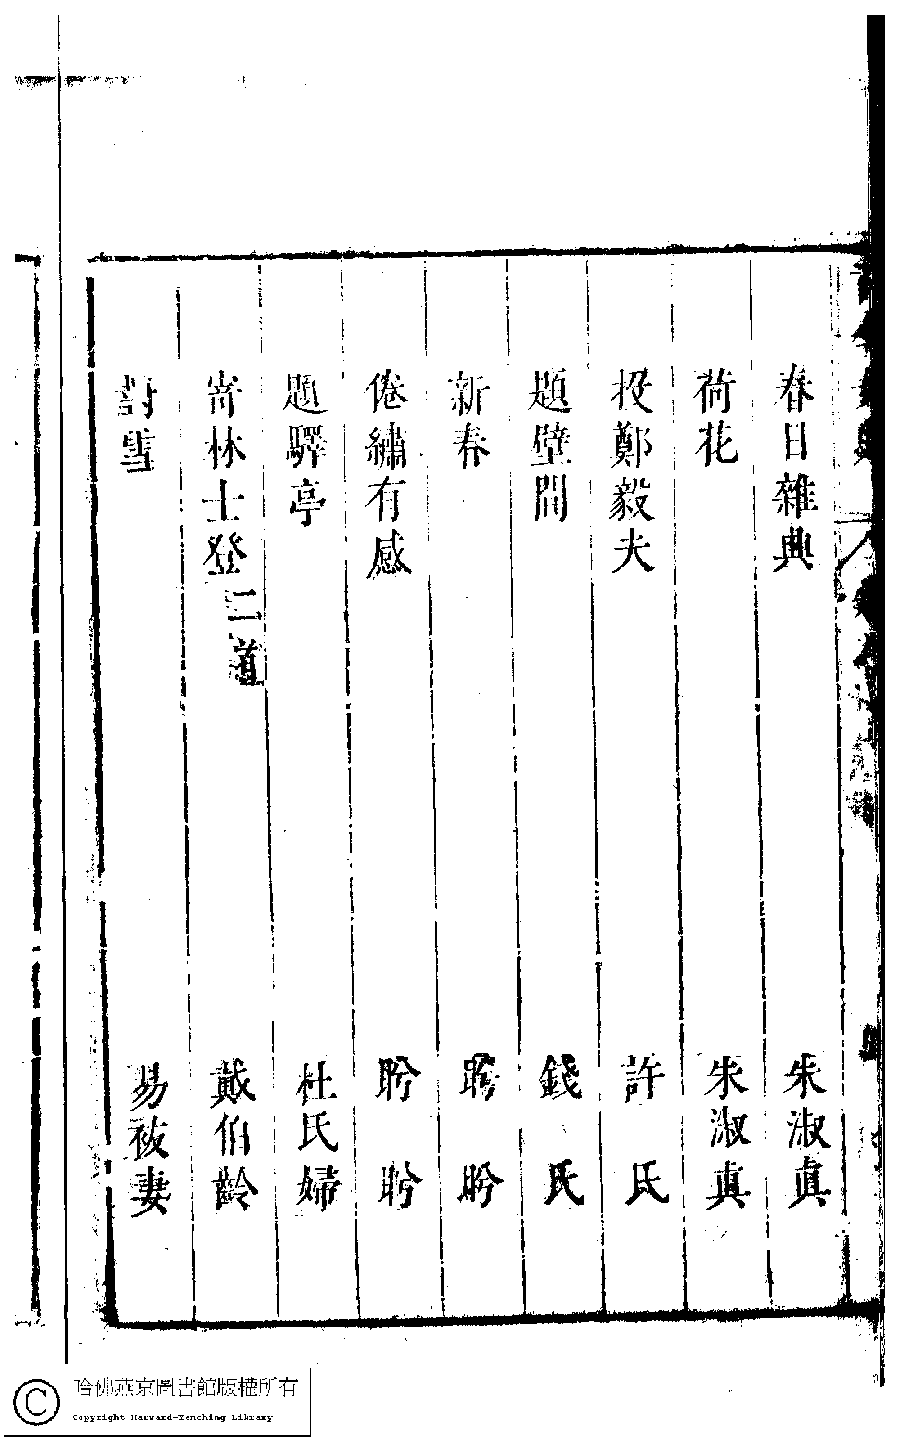 春日雜興 朱淑真
荷花 朱淑真
投鄭毅夫 許氏
題壁間 錢氏
新春 盼盼
倦繡有感 盼盼
題驛亭 杜氏婦
寄林士登二道 戴伯齡
詩雪 易祓妻
哈佛燕京圖書館版權所有
Copyright Harvard-Yenching Library